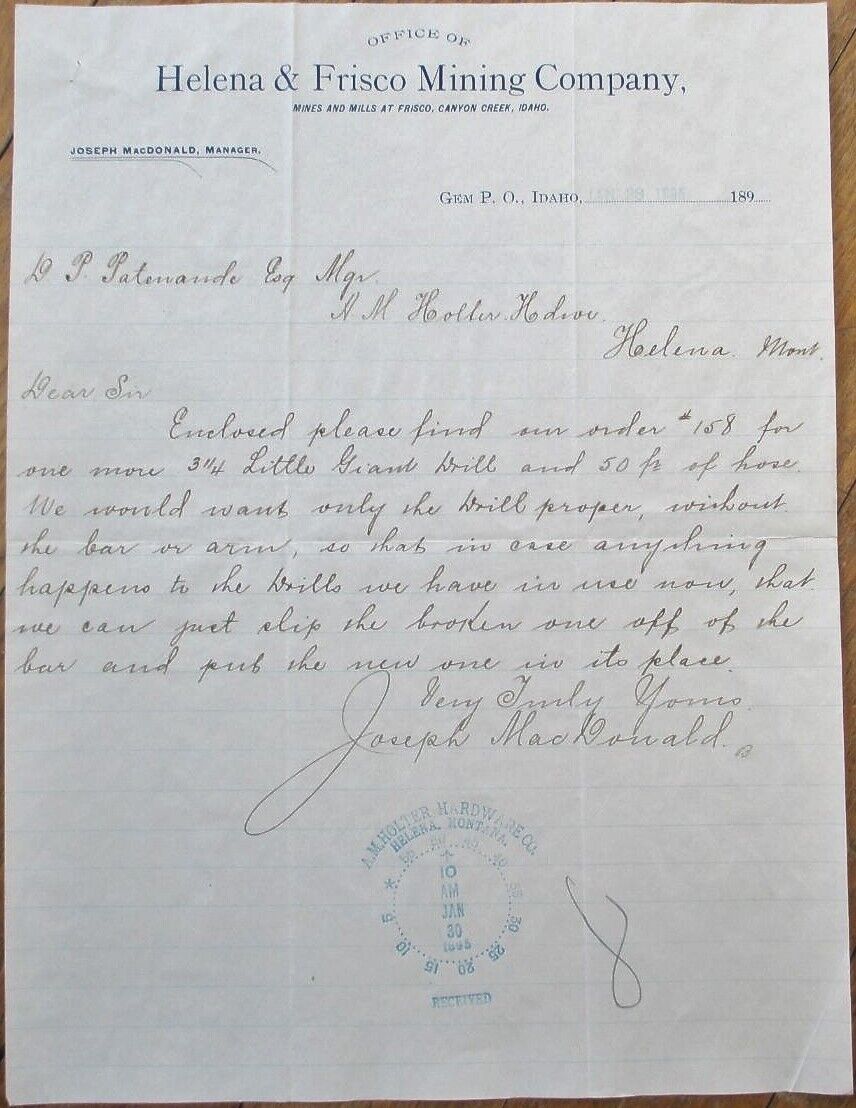 OFFICE OF
Helena & Frisco Mining Company,
MINES AND MILLS AT FRISCO, CANYON CREEK, IDAHO.
JOSEPH MACDONALD, MANAGER.
GEM P. O., IDAHO, JAN 28 1895 189
D P. Patenaude Esq Mgr.
A M Holter Hdwe.
Helena. Mont.
Dear Sir
Enclosed please find our order #158 for
one more 3 1/4 Little Giant Drill and 50 ft of hose.
We would want only the Drill proper, without
the bar or arm, so that in case anything
happens to the Drills we have in use now, that
we can just slip the broken one off of the
bar and put the new one in its place.
Very Truly Yours.
Joseph MacDonald.
A.M. HOLTER HARDWARE CO.
HELENA, MONTANA.
10
AM
JAN
30
1895
5 10 15 20 25 30 35 40
RECEIVED